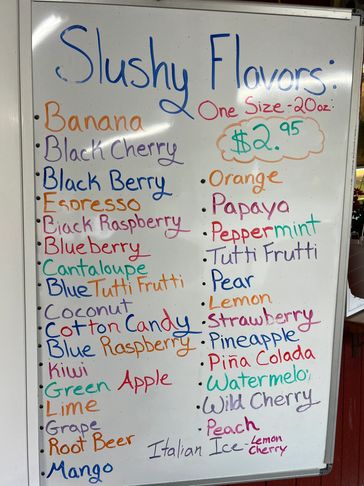 Slushy Flavors:
One Size - 20oz.
$2.95
• Banana
• Black Cherry
• Black Berry
• Espresso
• Black Raspberry
• Blueberry
• Cantaloupe
• Blue Tutti Frutti
• Coconut
• Cotton Candy
• Blue Raspberry
• Kiwi
• Green Apple
• Lime
• Grape
• Root Beer
• Mango
• Orange
• Papaya
• Peppermint
• Tutti Frutti
• Pear
• Lemon
• Strawberry
• Pineapple
• Piña Colada
• Watermelon
• Wild Cherry
• Peach
Italian Ice - Lemon
Cherry